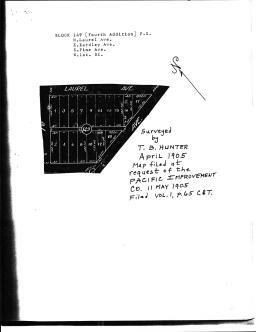 BLOCK 149 [Fourth Addition] P.G.
N.Laurel Ave.
E.Eardley Ave.
S.Pine Ave.
W.1st. St.
LAUREL AVE.
1 3 5 7 9 11 13
AVE.
Surveyed
by
T. B. HUNTER
APRIL 1905
Map filed at
request of the
PACIFIC IMPROVEMENT
CO. 11 MAY 1905
Filed VOL. 1, P.65 C&T.